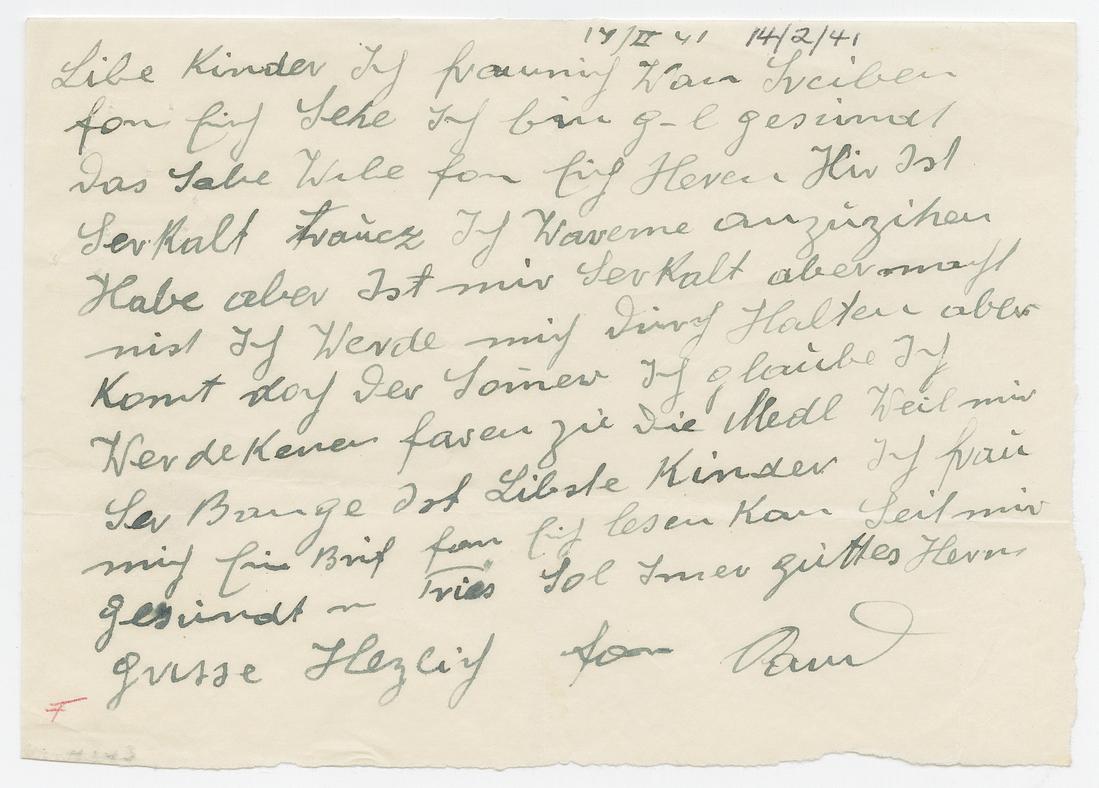 14/II 41 14/2/41
Libe Kinder Ich frau mich Wan Sreiben
fon Eich Sehe Ich bin g-l gesundt
das Selbe Wile fon Eich Heren Hir Ist
Ser Kalt traucz Ich Wareme anzuzihen
Habe aber Ist mir Ser Kalt aber macht
nist Ich Werde mich durch Halten aber
Komt doch der Somer Ich glaube Ich
Werde Kenen faren zu die Medl Weil mir
Ser Bange Ist Libste Kinder Ich frau
mich Ein Brif fon Eich lesen Kan Seit mir
gesundt n Sol Imer guttes Heren
grusse Hezlich fon